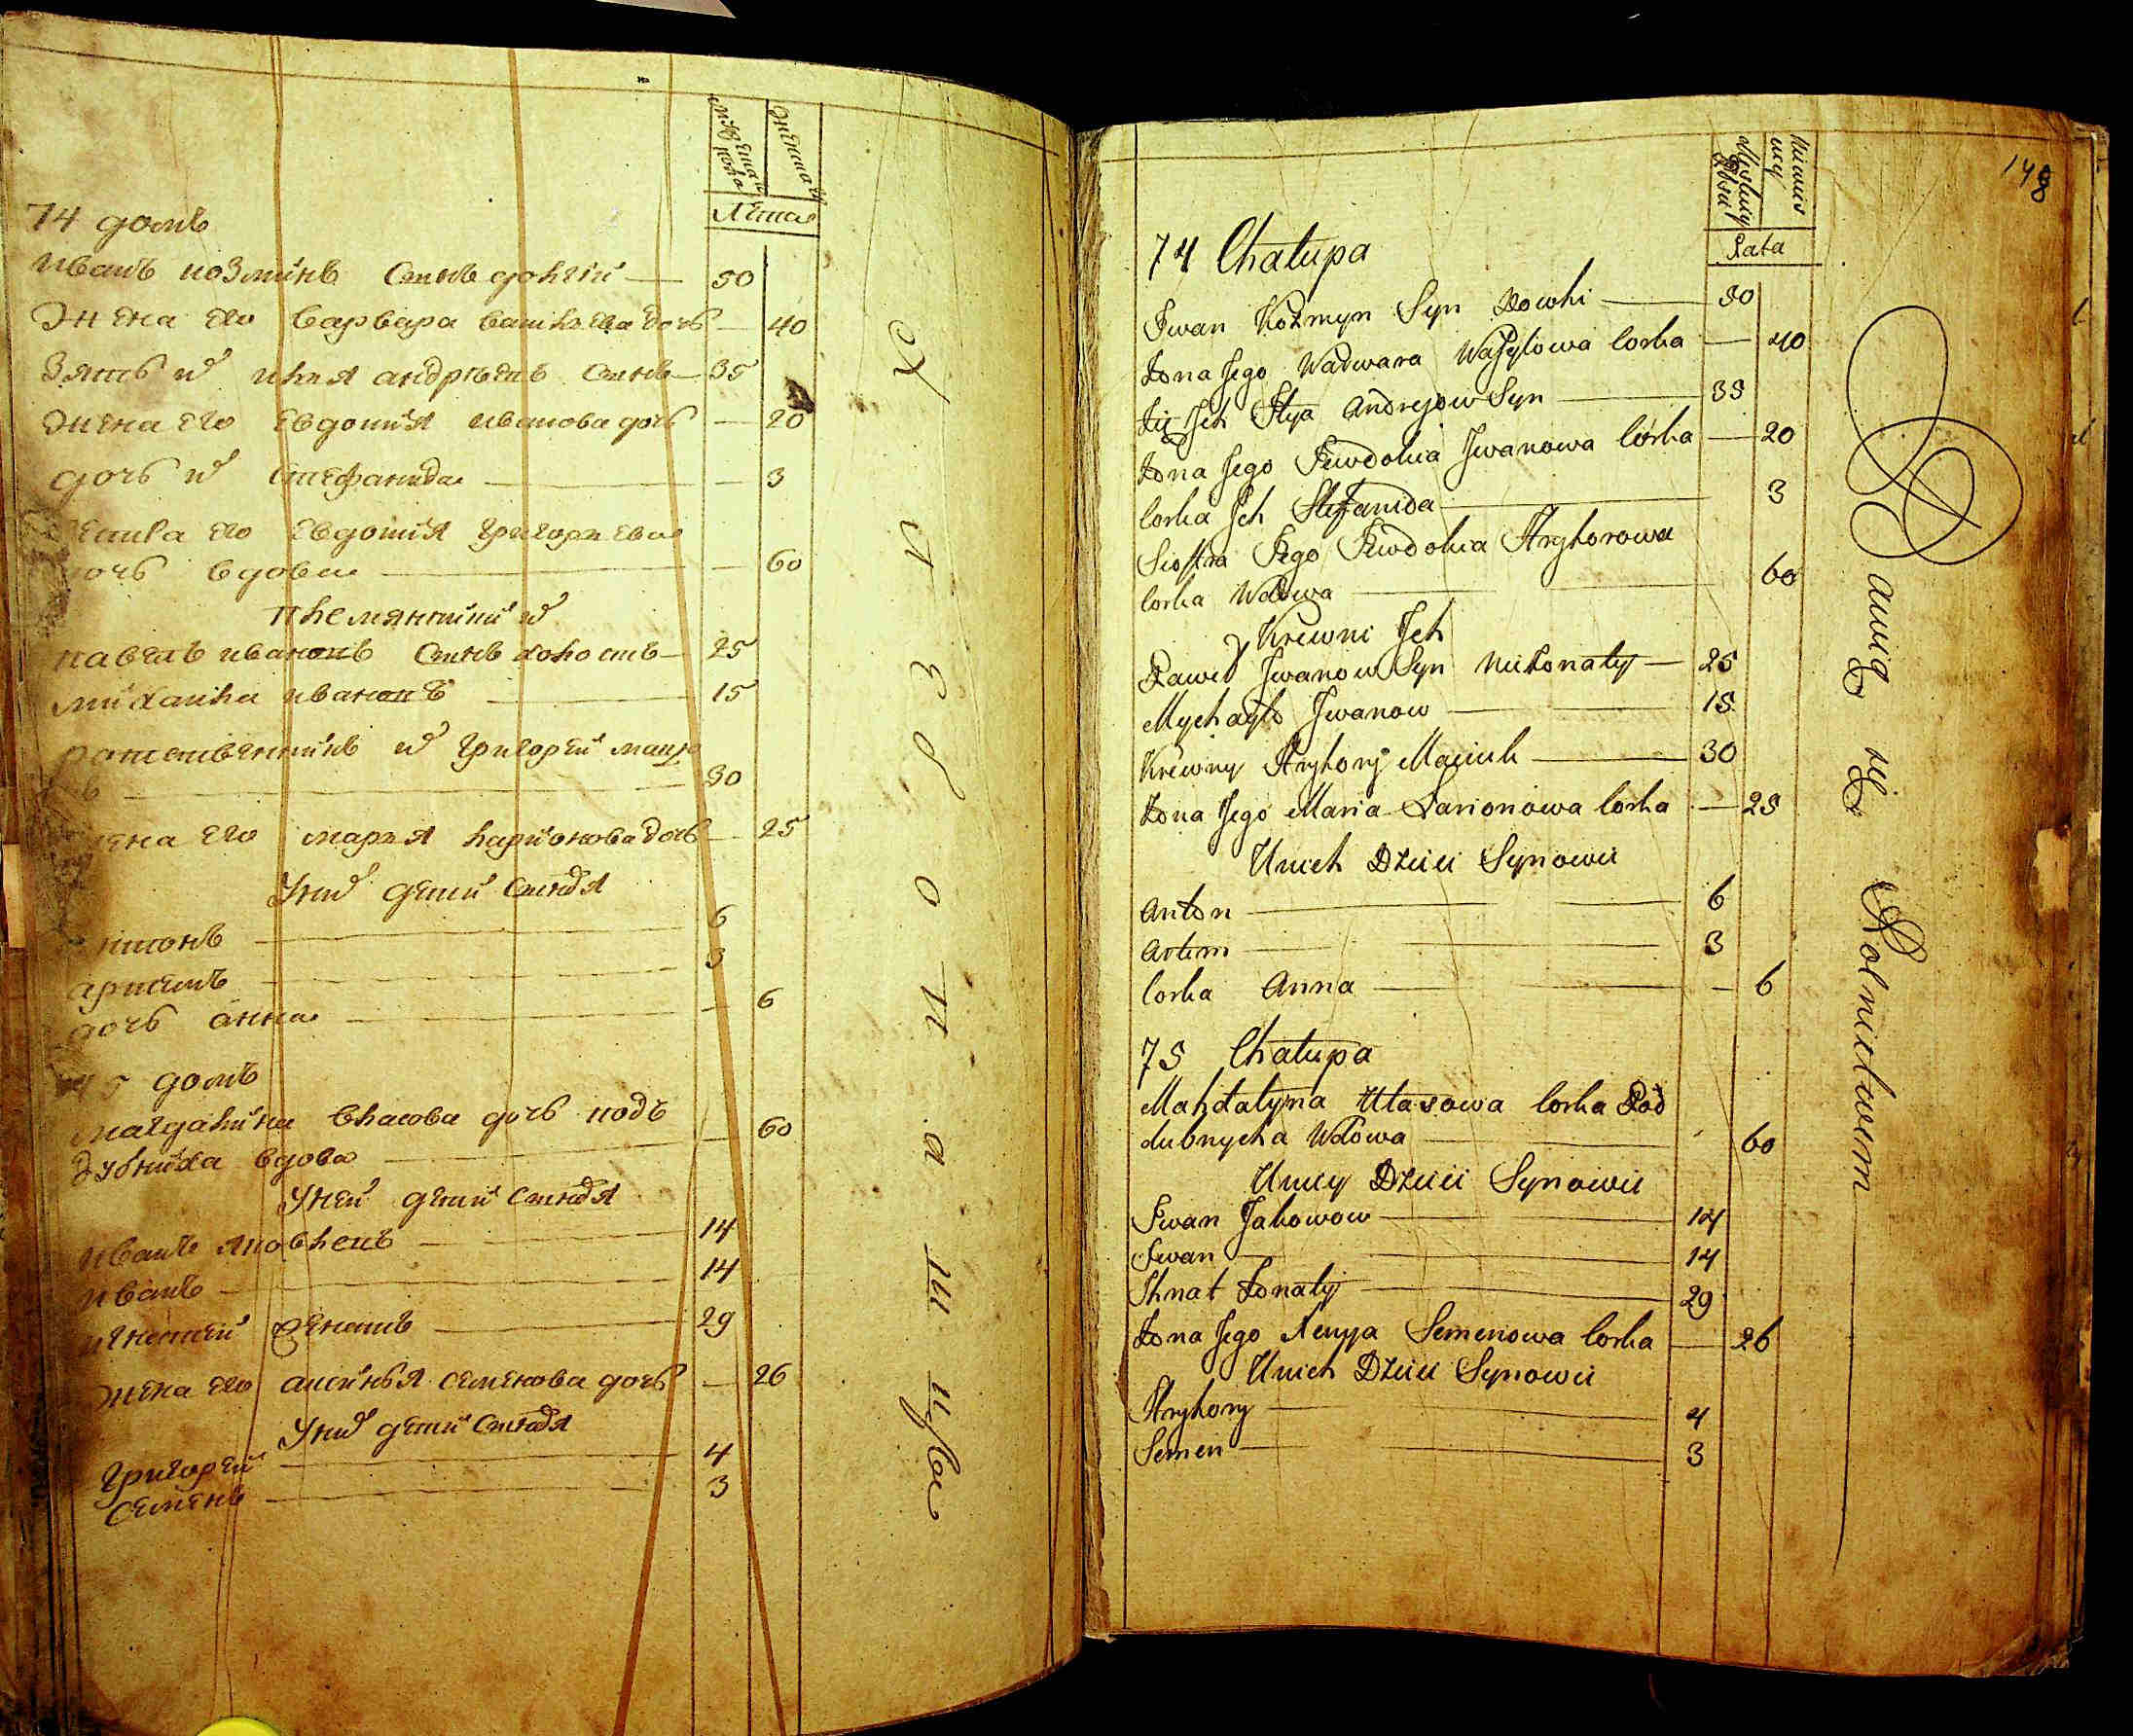 мужеска пола
женска
Лета
74 домъ
иванъ козминъ сынъ долгій 50
жена его варвара василева дочь 40
зять ихъ илия андрѣевъ сынъ 35
жена его евдокия иванова дочь 20
дочь ихъ стефанида 3
его евдокия григориева
вдова 60
племянники ихъ
павелъ ивановъ сынъ холостъ 25
михаила ивановъ 15
родственникъ ихъ григорей
30
его мария ларионова дочь 25
У них дети сыновя
6
артемъ 3
дочь анна 6
домъ
магдалина власова дочь подъ
дубниха вдова 60
У ней дети сыновя
иванъ яковлевъ 14
иванъ 14
игнатей женатъ 29
жена его аксиния семенова дочь 26
У них дети сыновя
григорей 4
семенъ 3
148
Męskiey Płci
Lata
74 Chałupa
Iwan Kozmyn Syn Dowhi 50
Żona Jego Warwara Wasylowa Corka 40
Zię Ich Ilya Andrejow Syn 35
Żona Jego Ewdokia Iwanowa Córka 20
Corka Ich Stefanida 3
Siostra Jego Ewdokia Hryhorowa
Corka Wdowa 60
Krewni Ich
Paweł Iwanow Syn nieżonaty 25
Mychayło Iwanow 15
Krewny Hryhory Maciuk 30
Żona Jego Maria Larionowa Corka 25
Unich Dzieci Synowie
Anton 6
Artem 3
Corka Anna 6
75 Chałupa
Mahdałyna Ułasowa Corka Pod
dubnycha Wdowa 60
Unicy Dzieci Synowie
Iwan Jakowow 14
Iwan 14
Ihnat Żonaty 29
Żona Jego Xenya Semenowa Corka 26
Unich Dzieci Synowie
Hryhory 4
Semen 3